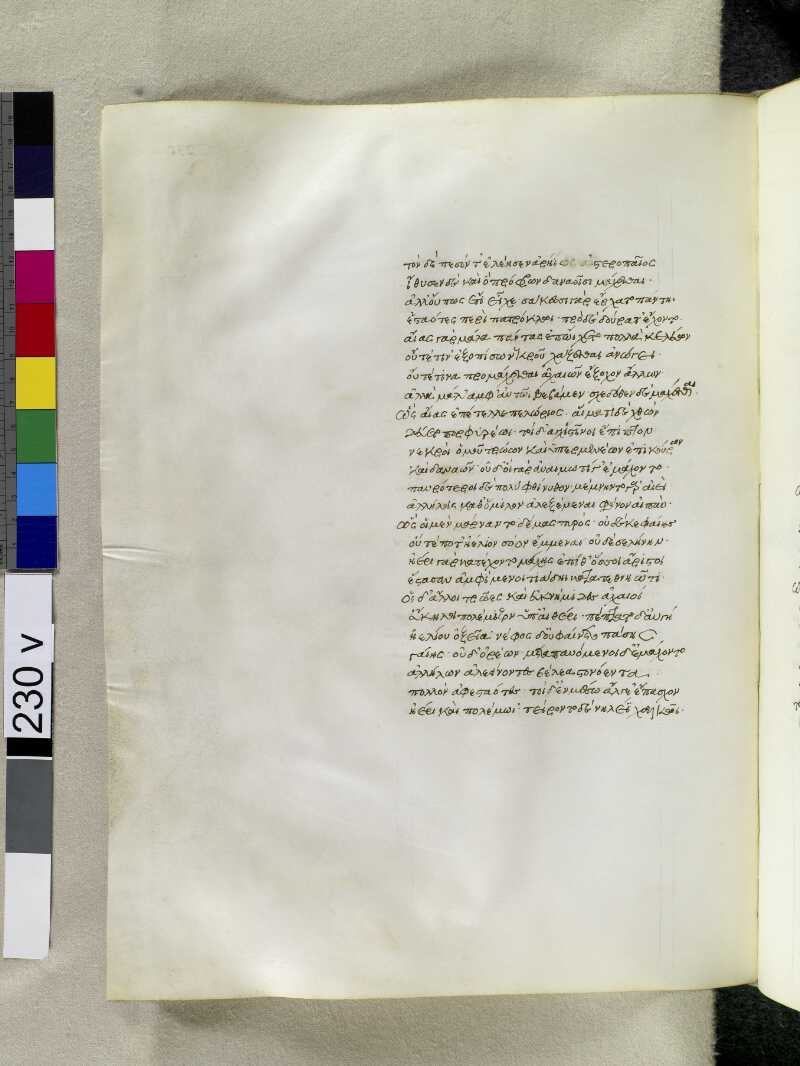 τὸν δὲ πεσόντ' ἐλέησεν ἀρήϊος ἀστεροπαῖος
ἴθυσεν δὲ καὶ ὁ πρόφρων δαναοῖσι μάχεσθαι·
ἀλλ' οὔπως ἔτι εἶχε· σάκεσσι γὰρ ἔρχατο πάντῃ
ἑσταότες περὶ πατρόκλωι· πρὸ δὲ δούρατ' ἔχοντο·
αἴας γὰρ μάλα πάντας ἐπώιχετο πολλὰ κελεύων
οὔτέ τιν' ἐξοπίσω νεκροῦ χάζεσθαι ἀνώγει·
οὔτέ τινα προμάχεσθαι ἀχαιῶν ἔξοχον ἄλλων
ἀλλὰ μάλ' ἀμφ' αὐτῶι βεβάμεν σχεδόθεν δὲ μάχεσθαι·
ὣς αἴας ἐπέτελλε πελώριος· αἵματι δὲ χθὼν
δεύετο πορφυρέωι· τοὶ δ' ἀγχιστῖνοι ἔπιπτον
νεκροὶ ὁμοῦ τρώων καὶ ὑπερμενέων ἐπικούρων
καὶ δαναῶν· οὐδ' οἳ γὰρ ἀναιμωτί γ' ἐμάχοντο·
παυρότεροι δὲ πολὺ φθίνυθον· μέμνηντο γὰρ αἰεὶ
ἀλλήλοις καθ' ὅμιλον ἀλεξέμεναι φόνον αἰπύν·
ὣς οἱ μὲν μάρναντο δέμας πυρός· οὐδέ κε φαίης
οὔτέ ποτ' ἠέλιον σόον ἔμμεναι οὐδὲ σελήνην·
ἠέρι γὰρ κατέχοντο μάχης ἐπὶ θ' ὅσσοι ἄριστοι
ἕστασαν ἀμφὶ μενοιτιάδηι κατατεθνηῶτι·
οἱ δ' ἄλλοι τρῶες καὶ ἐυκνήμιδες ἀχαιοὶ
εὔκηλοι πολέμιζον ὑπ' αἰθέρι· πέπτατο δ' αὐγὴ
ἠελίου ὀξεῖα· νέφος δ' οὐ φαίνετο πάσης
γαίης· οὐδ' ὀρέων· μεταπαυόμενοι δ' ἐμάχοντο
ἀλλήλων ἀλεείνοντες βέλεα στονόεντα·
πολλὸν ἀφεσταότες· τοὶ δ' ἐν μέσωι ἄλγε' ἔπασχον
ἠέρι καὶ πολέμωι· τείροντο δὲ νηλέϊ χαλκῶι·
230 v